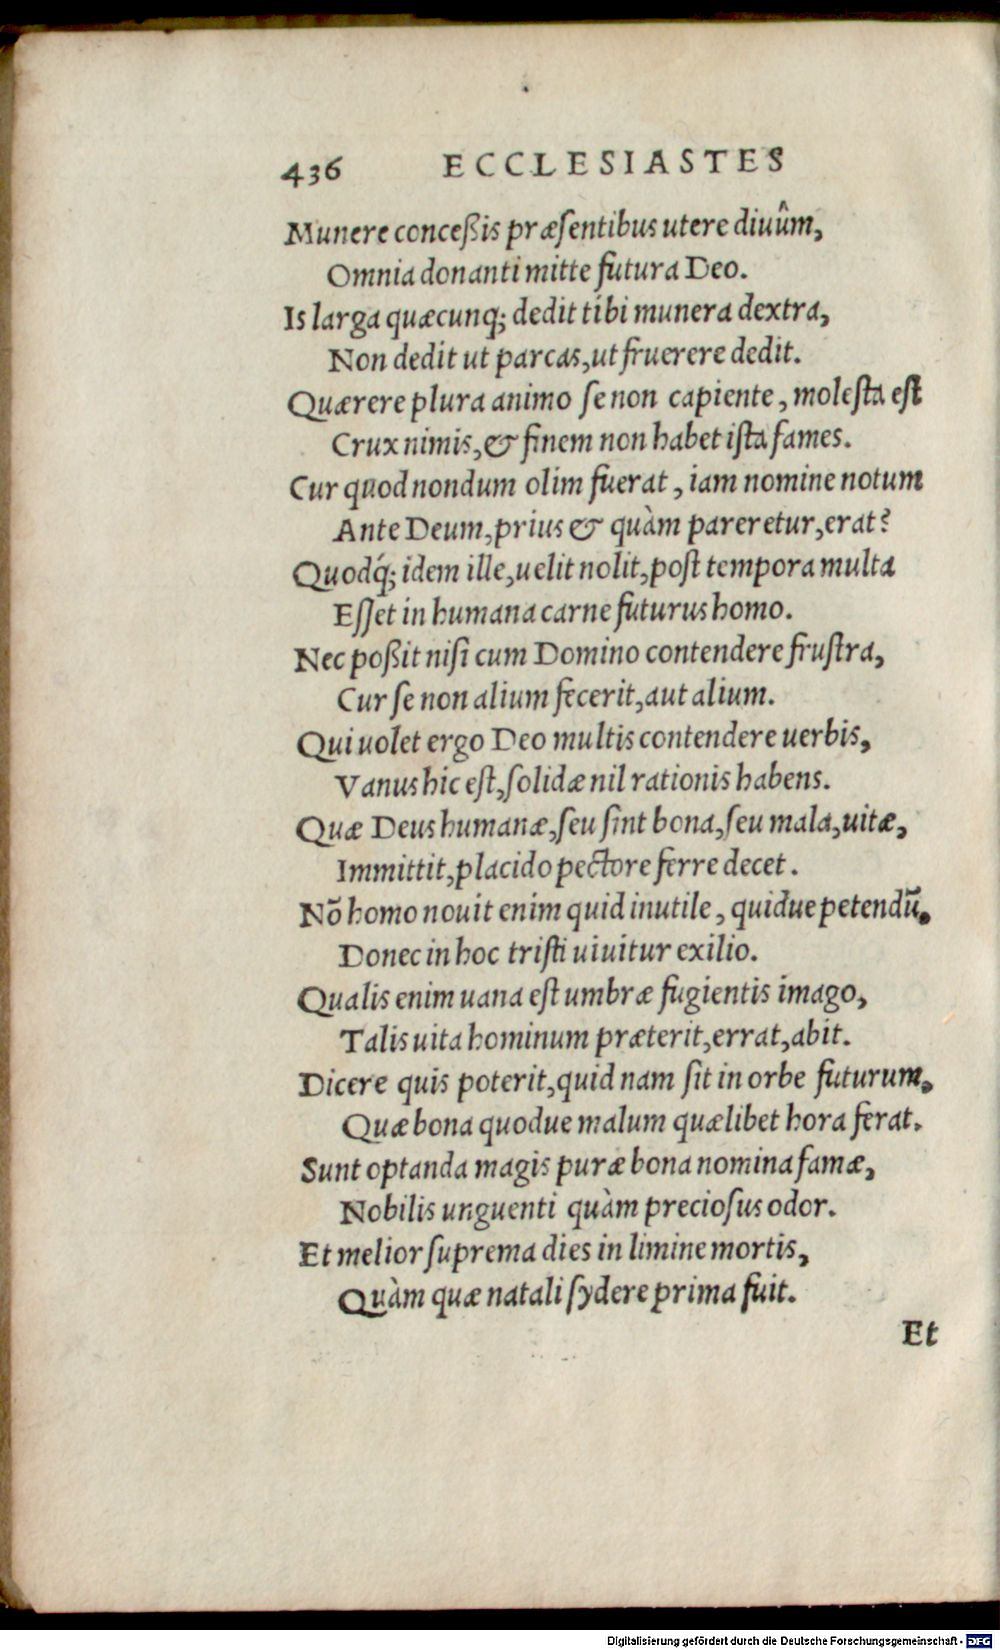 436 ECCLESIASTES
Munere conceßis præſentibus utere diuûm,
Omnia donanti mitte futura Deo.
Is larga quæcunq; dedit tibi munera dextra,
Non dedit ut parcas, ut fruerere dedit.
Quærere plura animo ſe non capiente, moleſta eſt
Crux nimis, & finem non habet iſta fames.
Cur quod nondum olim fuerat, iam nomine notum
Ante Deum, prius & quàm pareretur, erat?
Quodq́; idem ille, uelit nolit, poſt tempora multa
Eſſet in humana carne futurus homo.
Nec poßit niſi cum Domino contendere fruſtra,
Cur ſe non alium fecerit, aut alium.
Qui uolet ergo Deo multis contendere uerbis,
Vanus hic eſt, ſolidæ nil rationis habens.
Quæ Deus humanæ, ſeu ſint bona, ſeu mala, uitæ,
Immittit, placido pectore ferre decet.
Nō homo nouit enim quid inutile, quidue petendū.
Donec in hoc triſti uiuitur exilio.
Qualis enim uana eſt umbræ fugientis imago,
Talis uita hominum præterit, errat, abit.
Dicere quis poterit, quid nam ſit in orbe futurum,
Quæ bona quodue malum quælibet hora ferat.
Sunt optanda magis puræ bona nomina famæ,
Nobilis unguenti quàm precioſus odor.
Et melior ſuprema dies in limine mortis,
Quàm quæ natali ſydere prima fuit.
Et
Digitalisierung gefördert durch die Deutsche Forschungsgemeinschaft - DFG